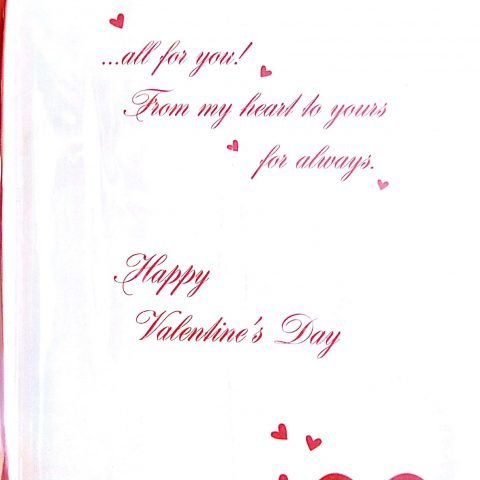 ...all for you!
From my heart to yours
for always.
Happy
Valentine's Day